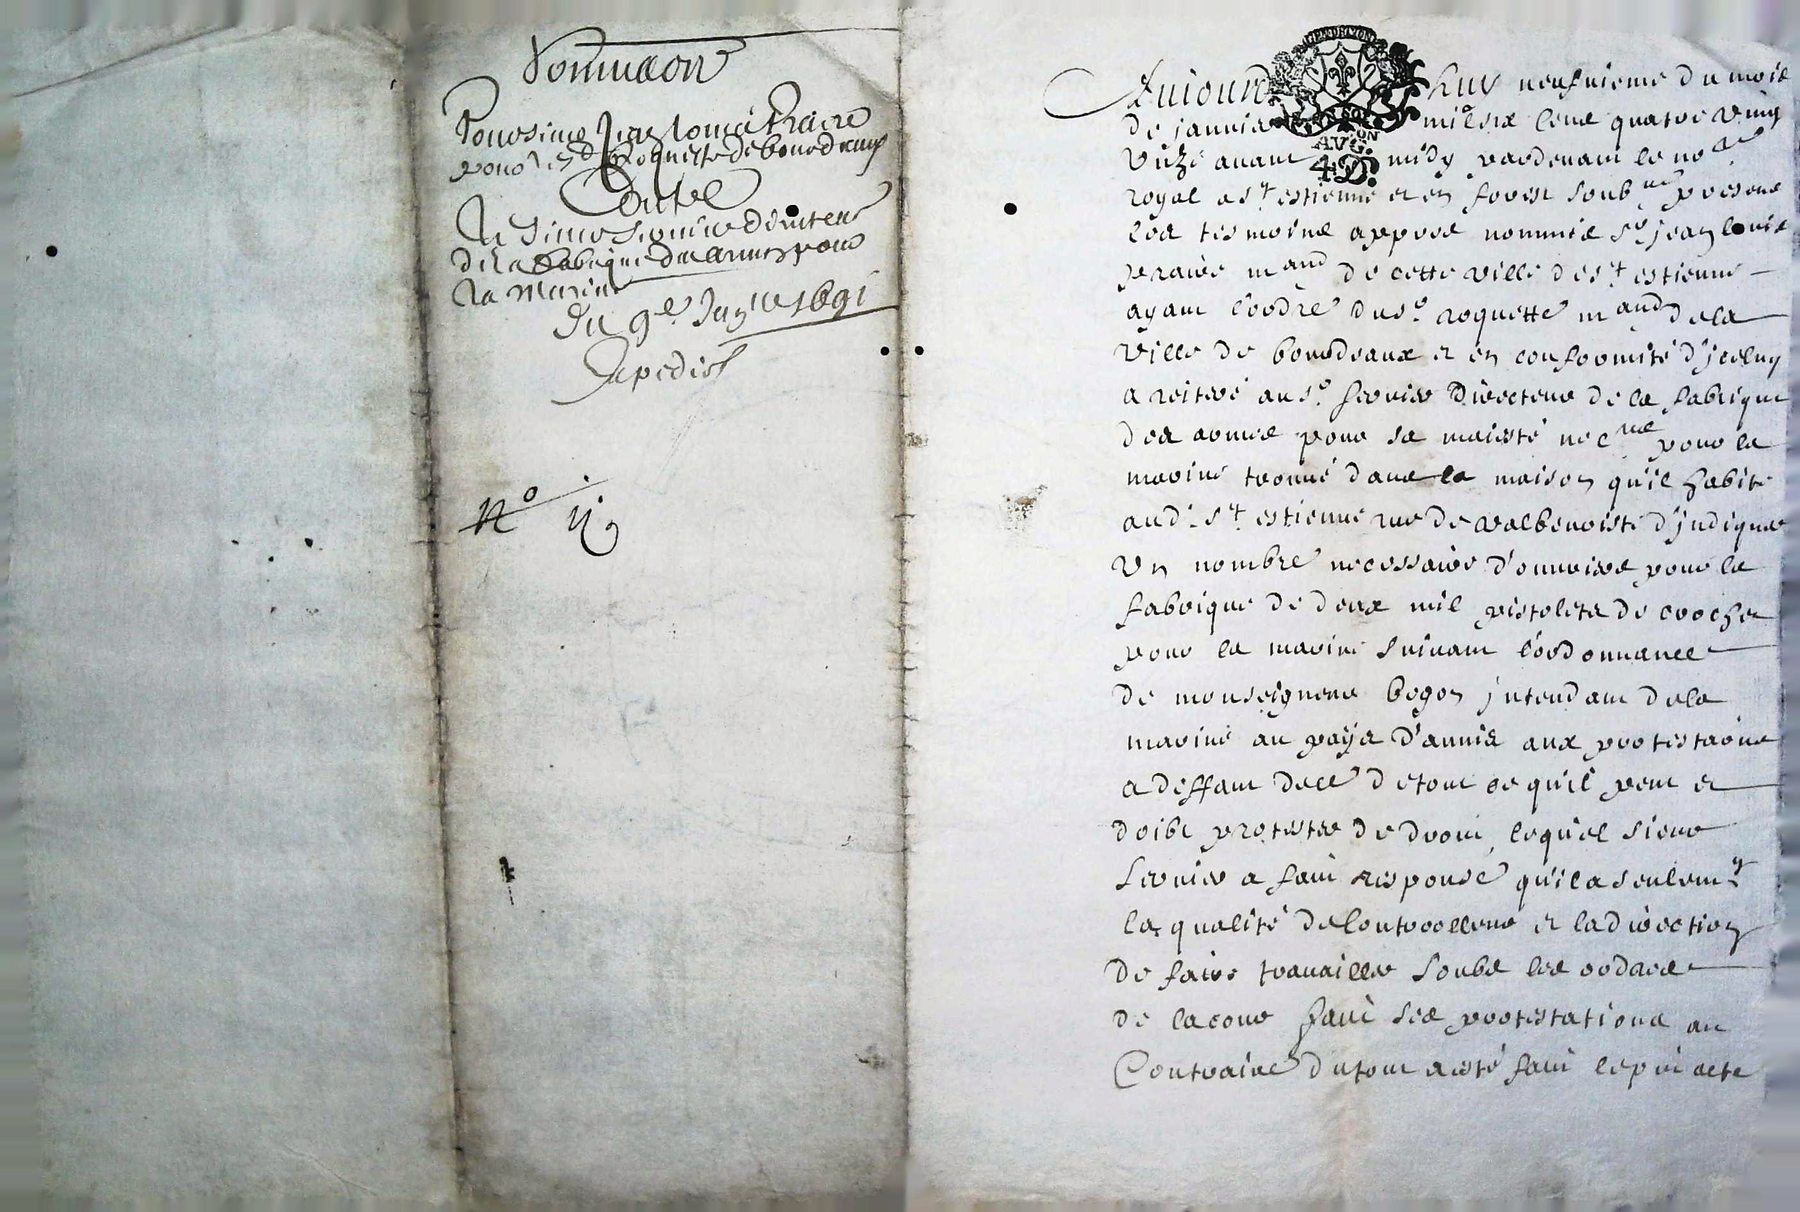 Sommaon
Pour sieur Jean Louis Praire
pour le s.r Roquette de bourdeaux
Contre
Le sieur Fournier directeur
de la fabrique des armes pour
la marine
Du 9.e Janv.er 1691
Expedié
N.o
Aujourd'huy neufuieme du mois
de januier mil six cens quatre vingt
vnze auant midy pardeuant le no.re
royal a s.t estienne et en forest soub.né presens
les tesmoins appres nommés s.r jean louis
praire marand de cette ville de s.t estienne
ayant l'ordre du s.r roquette marand de la
ville de bourdeaux et en conformité d'jceluy
a reiteré au s.r fernier directeur de la fabrique
des armes pour sa maiesté pour la
marine trouué dans la maison qu'il habite
aud. s.t estienne rue de valbenoiste d'jndiquer
vn nombre necessaire d'ouuriers pour la
fabrique de deux mil pistolets de crochet
pour la marine suiuant l'ordonnance
de monseigneur begon jntendant de la
marine au pays d'aunis aux protestaons
a deffaut de ce de tout ce qu'il peut et
doibt protester de droit, lequel sieur
fernier a fait responce qu'il a seulem.t
la qualité de Controolleur et la direction
de faire trauailler soubs les ordres
de la cour fait ses protestations au
Contraire du tout a esté fait le pnt acte